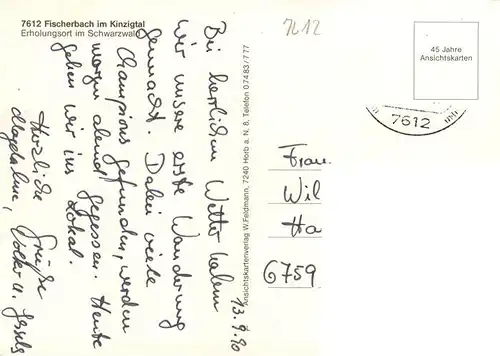 7612 Fischerbach im Kinzigtal
Erholungsort im Schwarzwald
7612
45 Jahre
Ansichtskarten
7612
13.9.90
Bei herrlichem Wetter haben
wir unsere erste Wanderung
gemacht. Dabei viele
Champions gefunden, werden
morgen abend gegessen. Heute
gehen wir ins Lokal.
Herzliche Grüße
Magdalene, Volker u.
Ansichtskartenverlag W. Feldmann, 7240 Horb a. N. 8, Telefon 0 74 83 / 7 77
Frau
Wil
Ha
6759